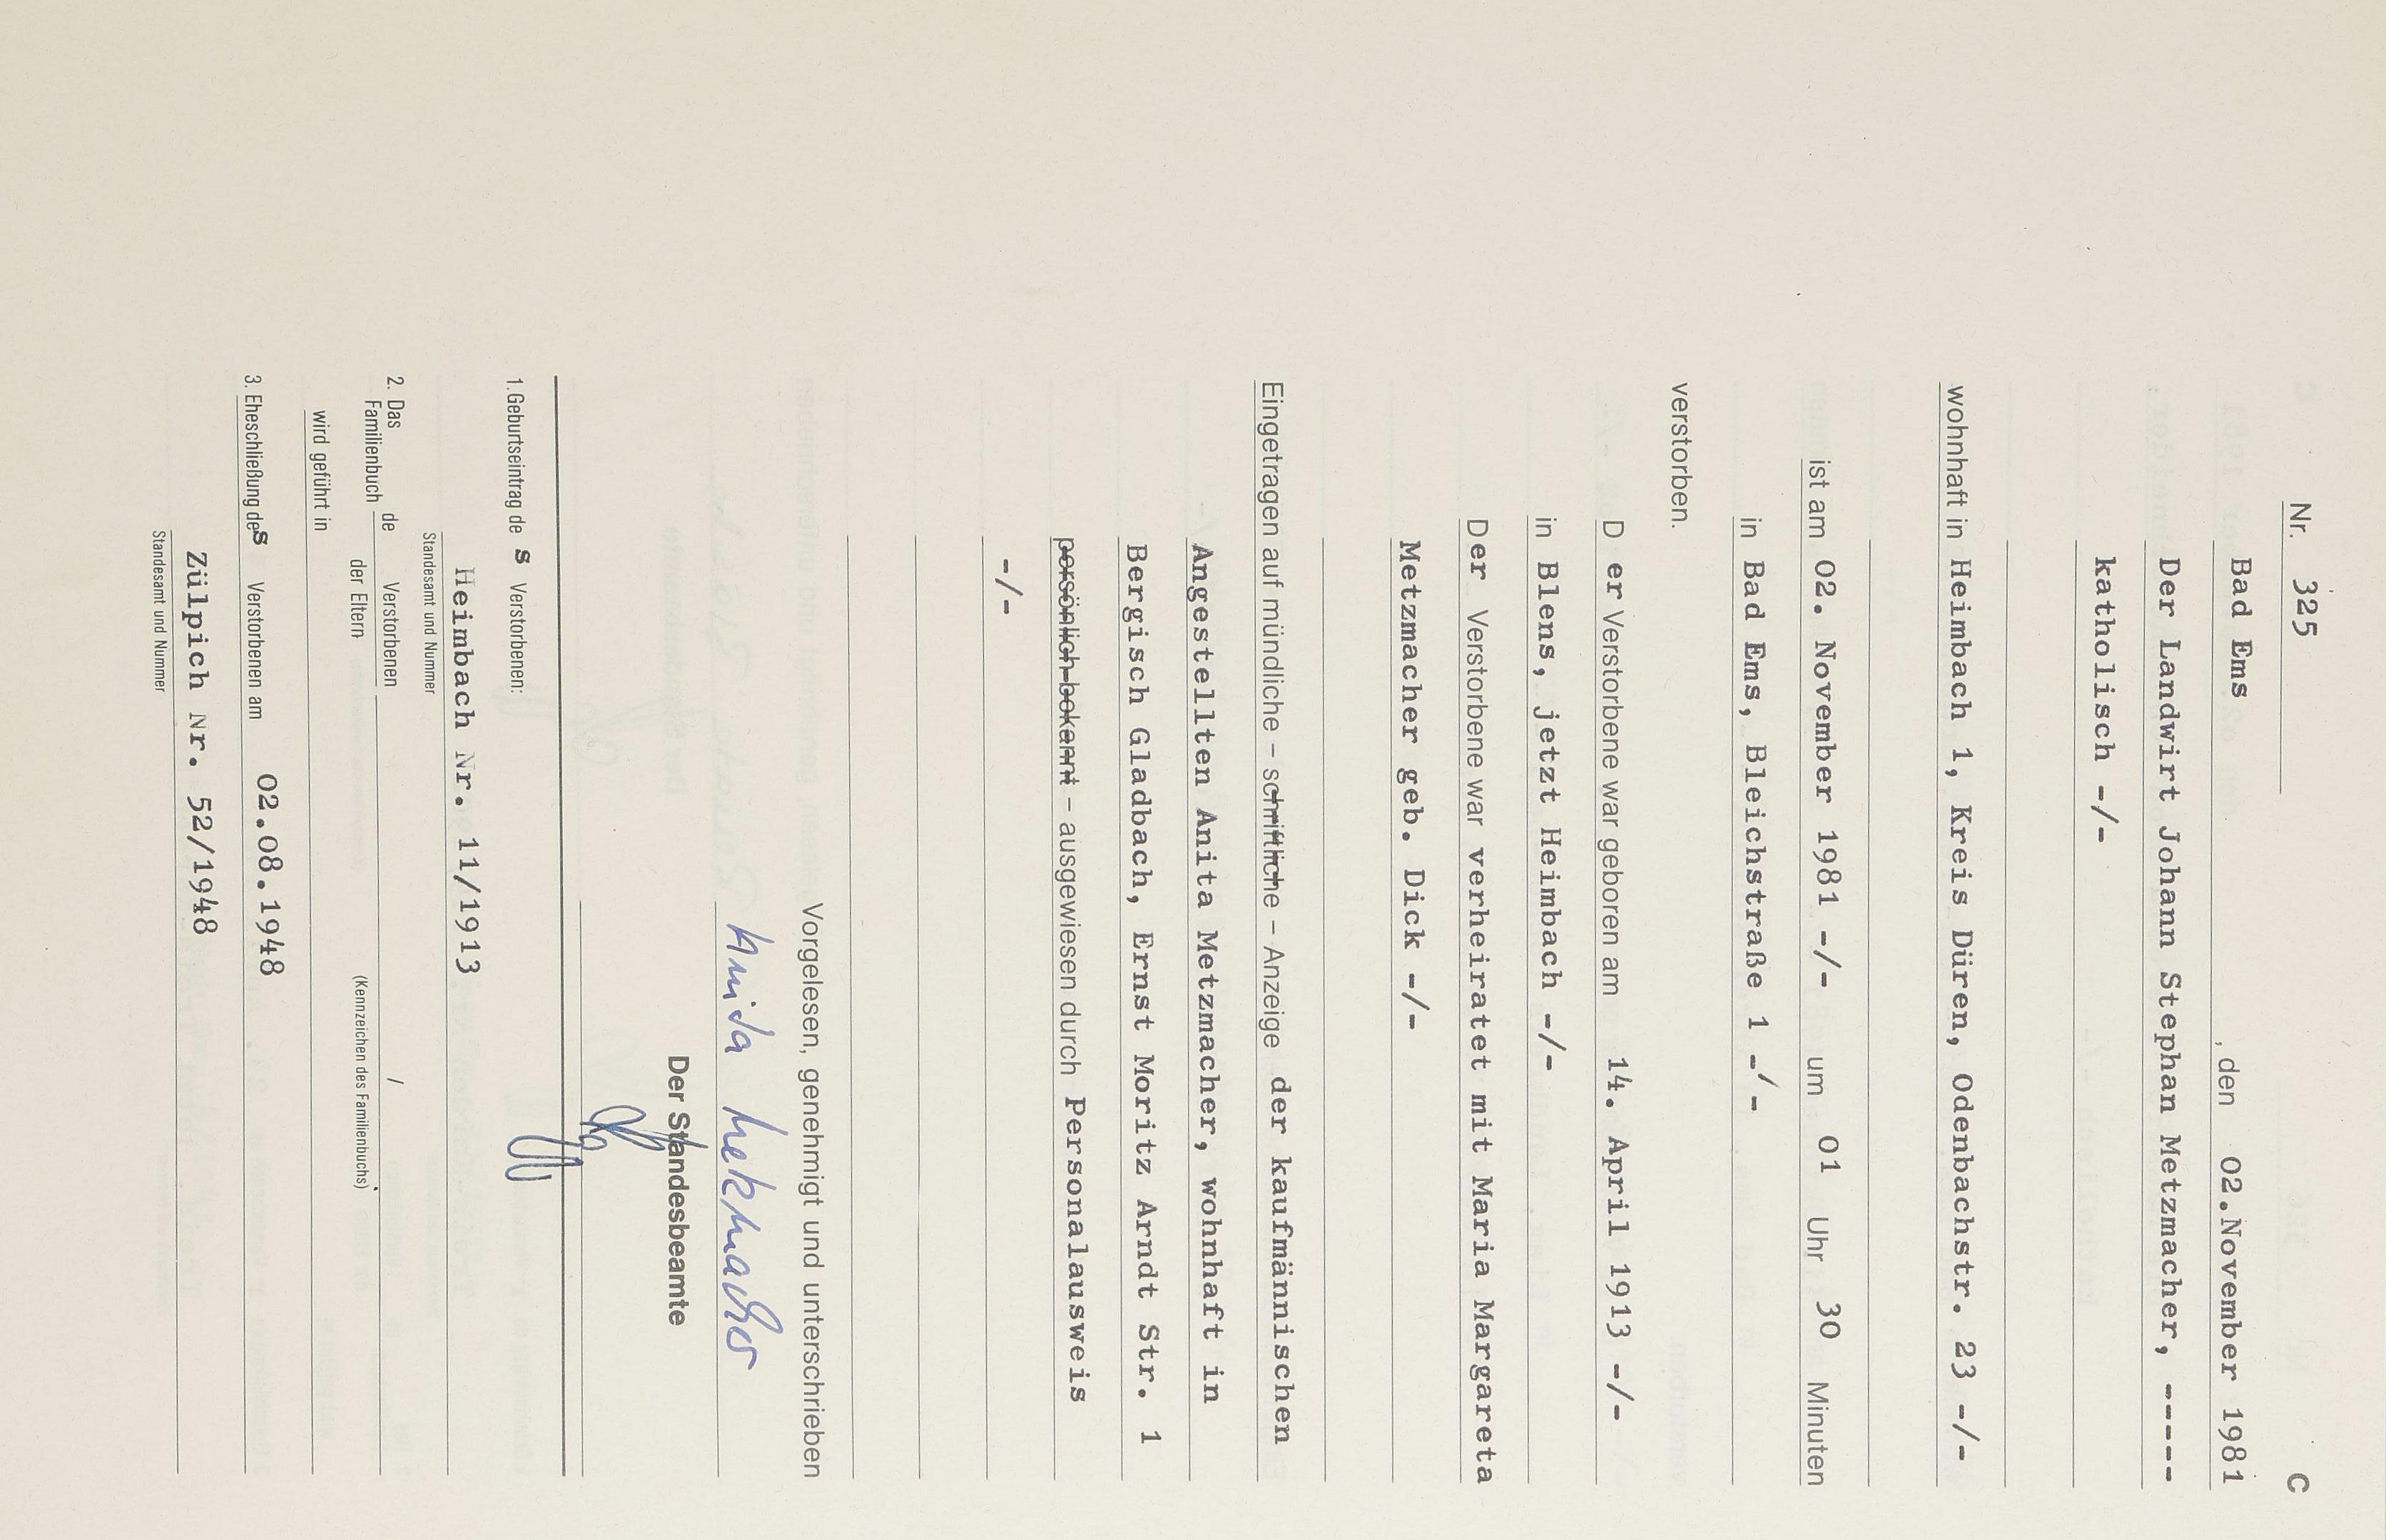 Nr. 325 C
Bad Ems , den 02.November 1981
Der Landwirt Johann Stephan Metzmacher, -----
katholisch -/-
wohnhaft in Heimbach 1, Kreis Düren, Odenbachstr. 23 -/-
ist am 02. November 1981 -/- um 01 Uhr 30 Minuten
in Bad Ems, Bleichstraße 1 -/-
verstorben.
D er Verstorbene war geboren am 14. April 1913 -/-
in Blens, jetzt Heimbach -/-
Der Verstorbene war verheiratet mit Maria Margareta
Metzmacher geb. Dick -/-
Eingetragen auf mündliche – schriftliche – Anzeige der kaufmännischen
Angestellten Anita Metzmacher, wohnhaft in
Bergisch Gladbach, Ernst Moritz Arndt Str. 1
persönlich bekannt – ausgewiesen durch Personalausweis
-/-
Vorgelesen, genehmigt und unterschrieben
Anita Metzmacher
Der Standesbeamte
1. Geburtseintrag de s Verstorbenen:
Heimbach Nr. 11/1913
Standesamt und Nummer
2. Das Familienbuch de Verstorbenen /
der Eltern (Kennzeichen des Familienbuchs)
wird geführt in
3. Eheschließung des Verstorbenen am 02.08.1948
Zülpich Nr. 52/1948
Standesamt und Nummer